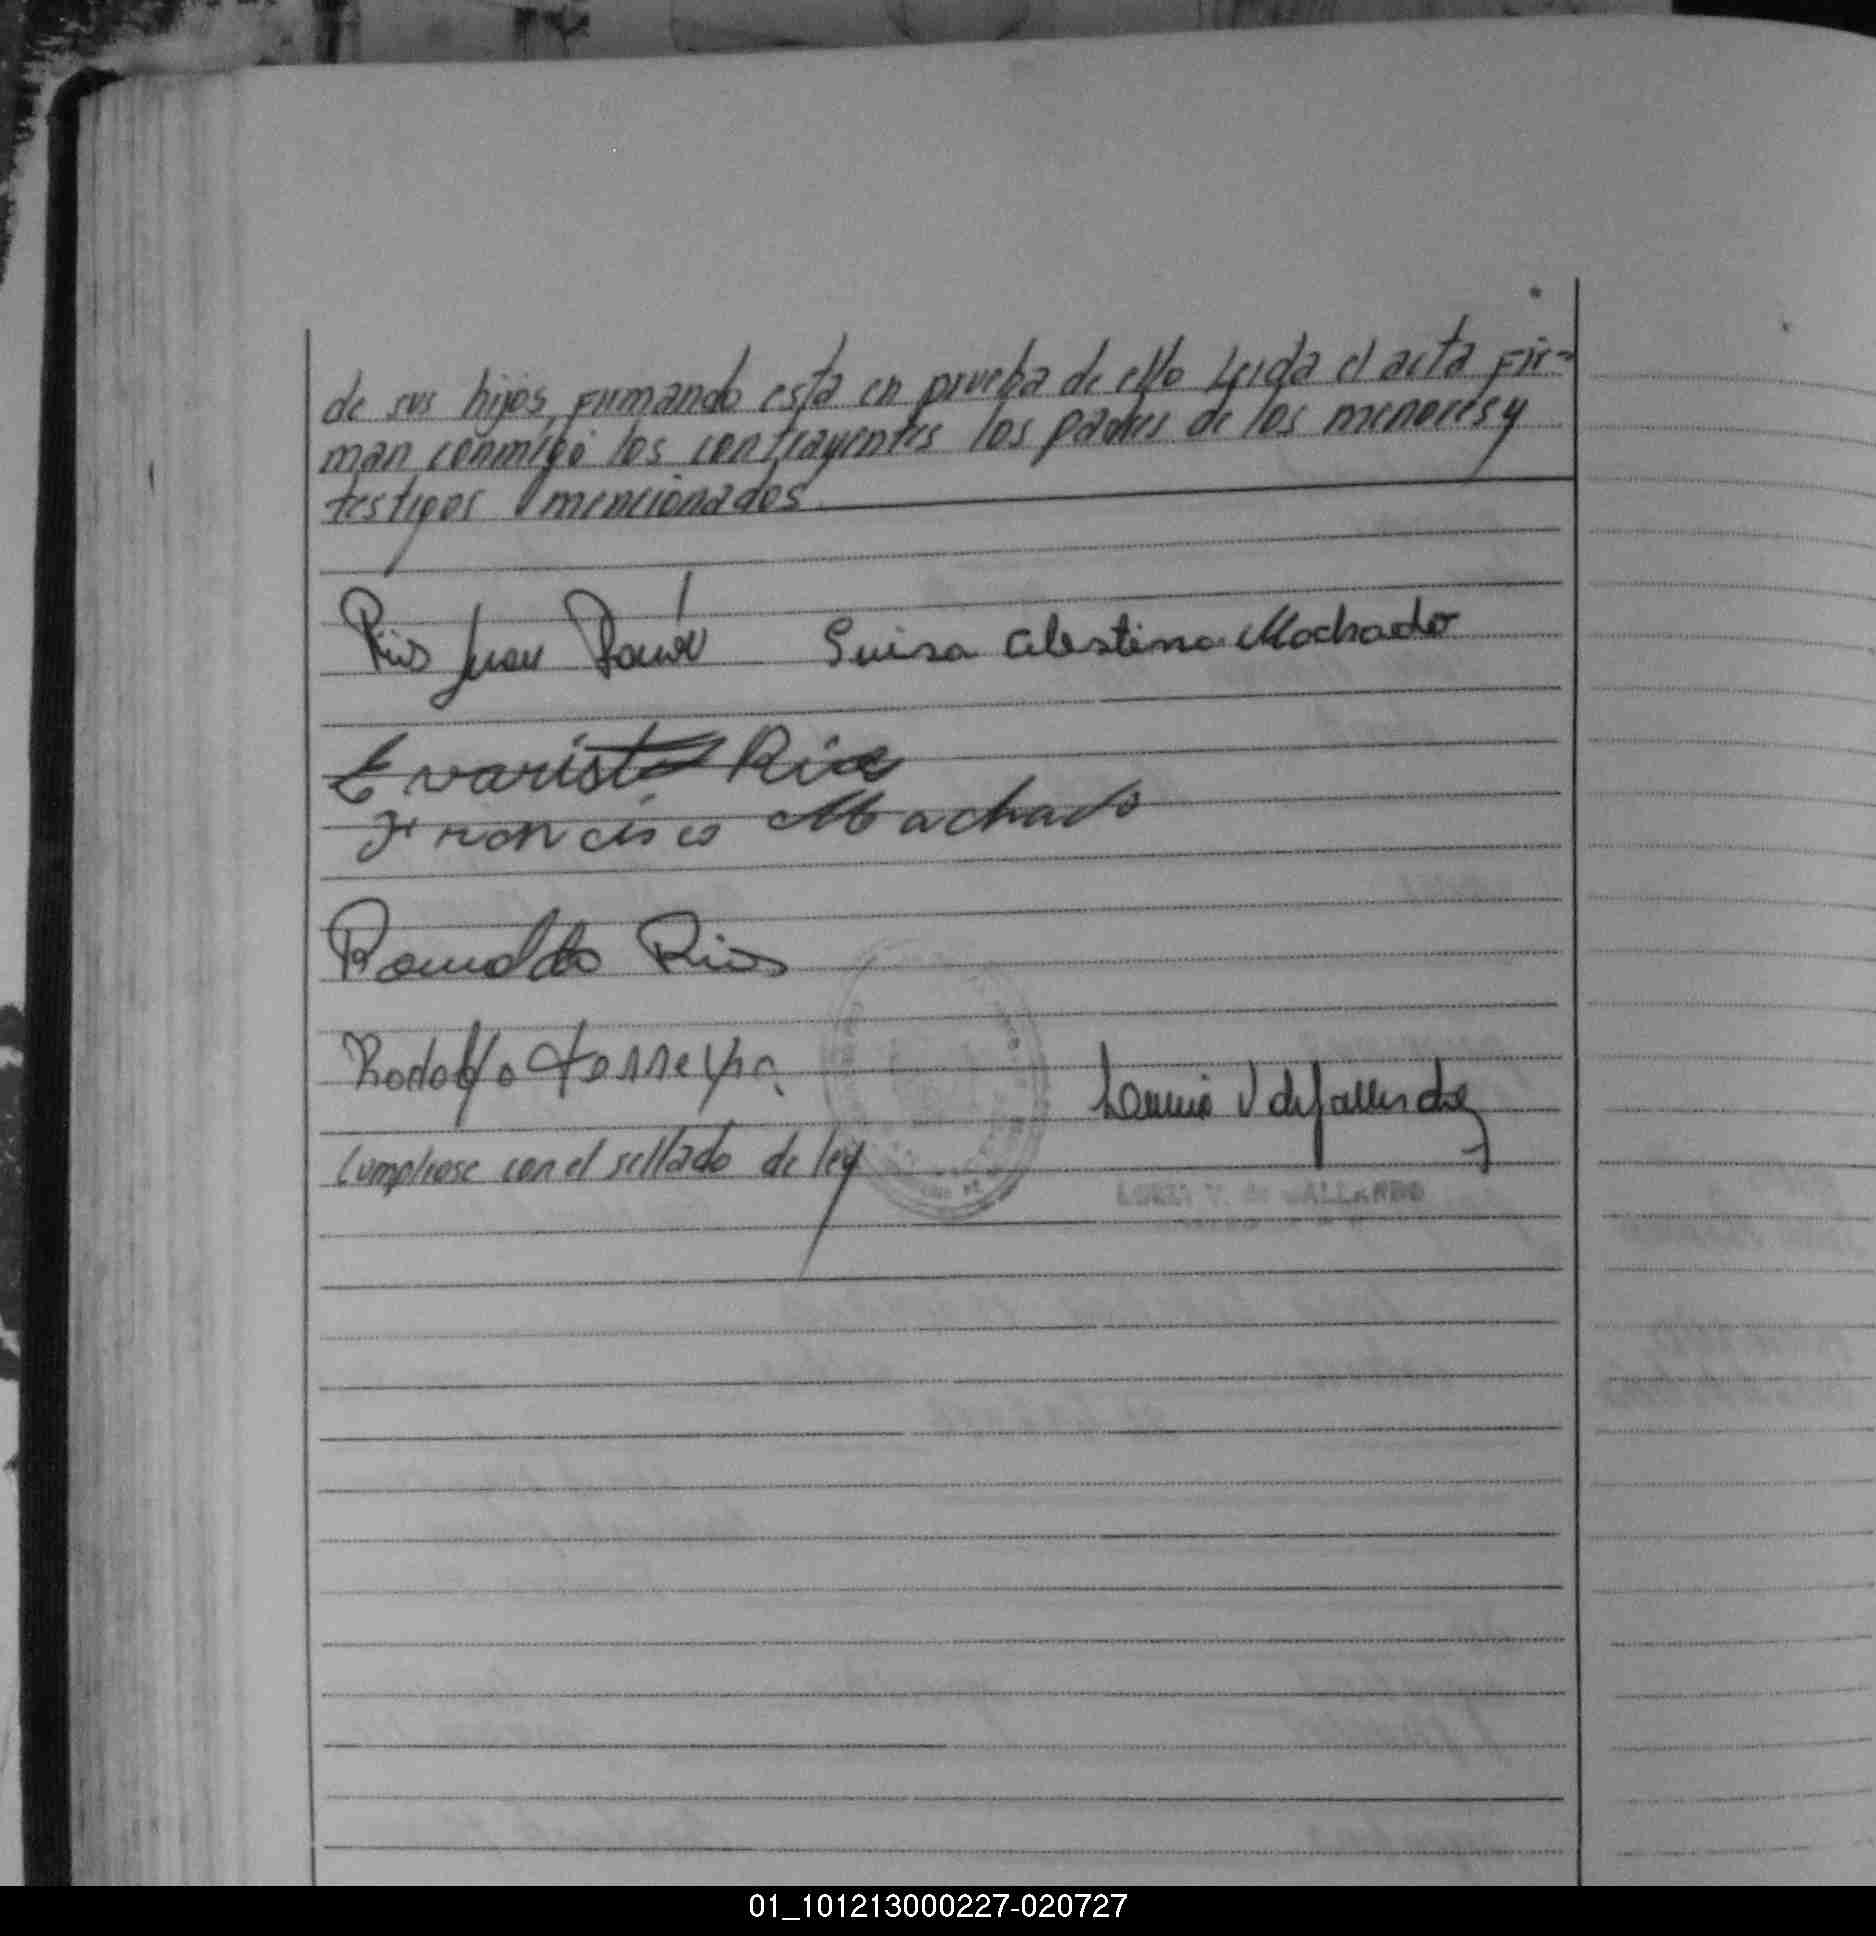 de sus hijos, firmando esta en prueba de ello Leida el acta fir=
man conmigo los contrayentes los padres de los menores y
testigos mencionados
Rios Juan Ramón Luisa Celestina Machado
Evaristo Rios
Francisco Machado
Romualdo Rios
Rodolfo Ferreyra
V de Gallardo
Cumplease con el sellado de ley
V. de GALLARDO
01_101213000227-020727